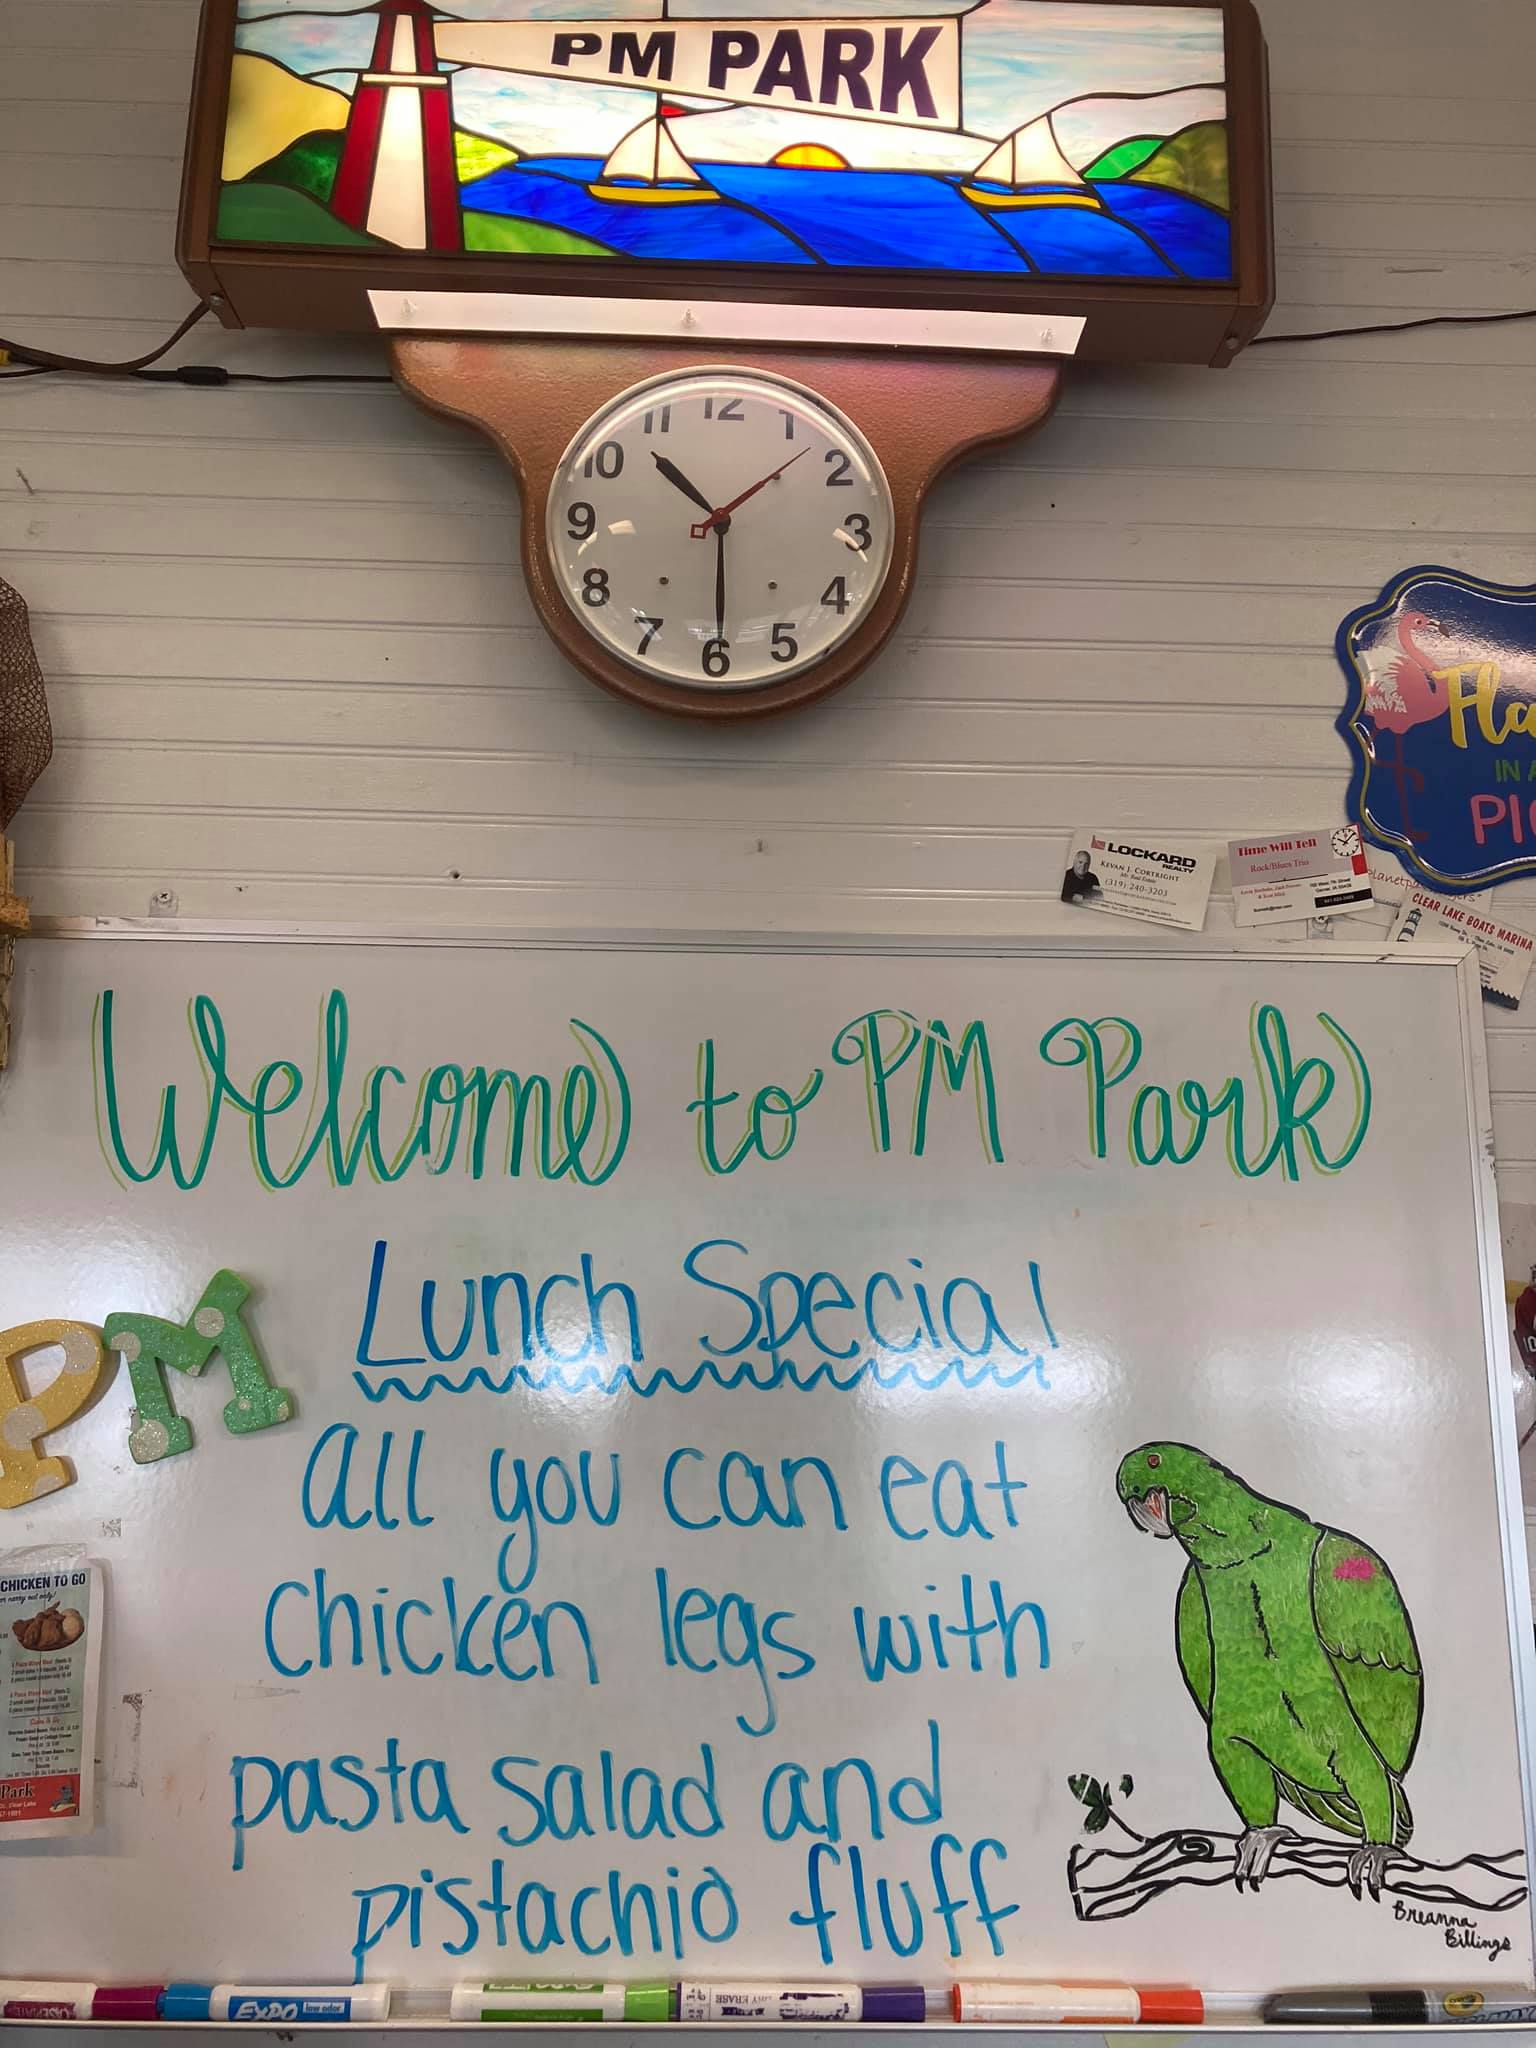 PM PARK
11 12 1
10 2
9 3
8 4
7 6 5
Fla
IN A
PI
LOCKARD
REALTY
KEVAN J. CORTRIGHT
(319) 240-3203
Time Will Tell
Rock/Blues Trio
CLEAR LAKE BOATS MARINA
Welcome to PM Park
Lunch Special
all you can eat
chicken legs with
pasta salad and
pistachio fluff
PM
CHICKEN TO GO
Park
Breanna
Billings
EXPO low odor